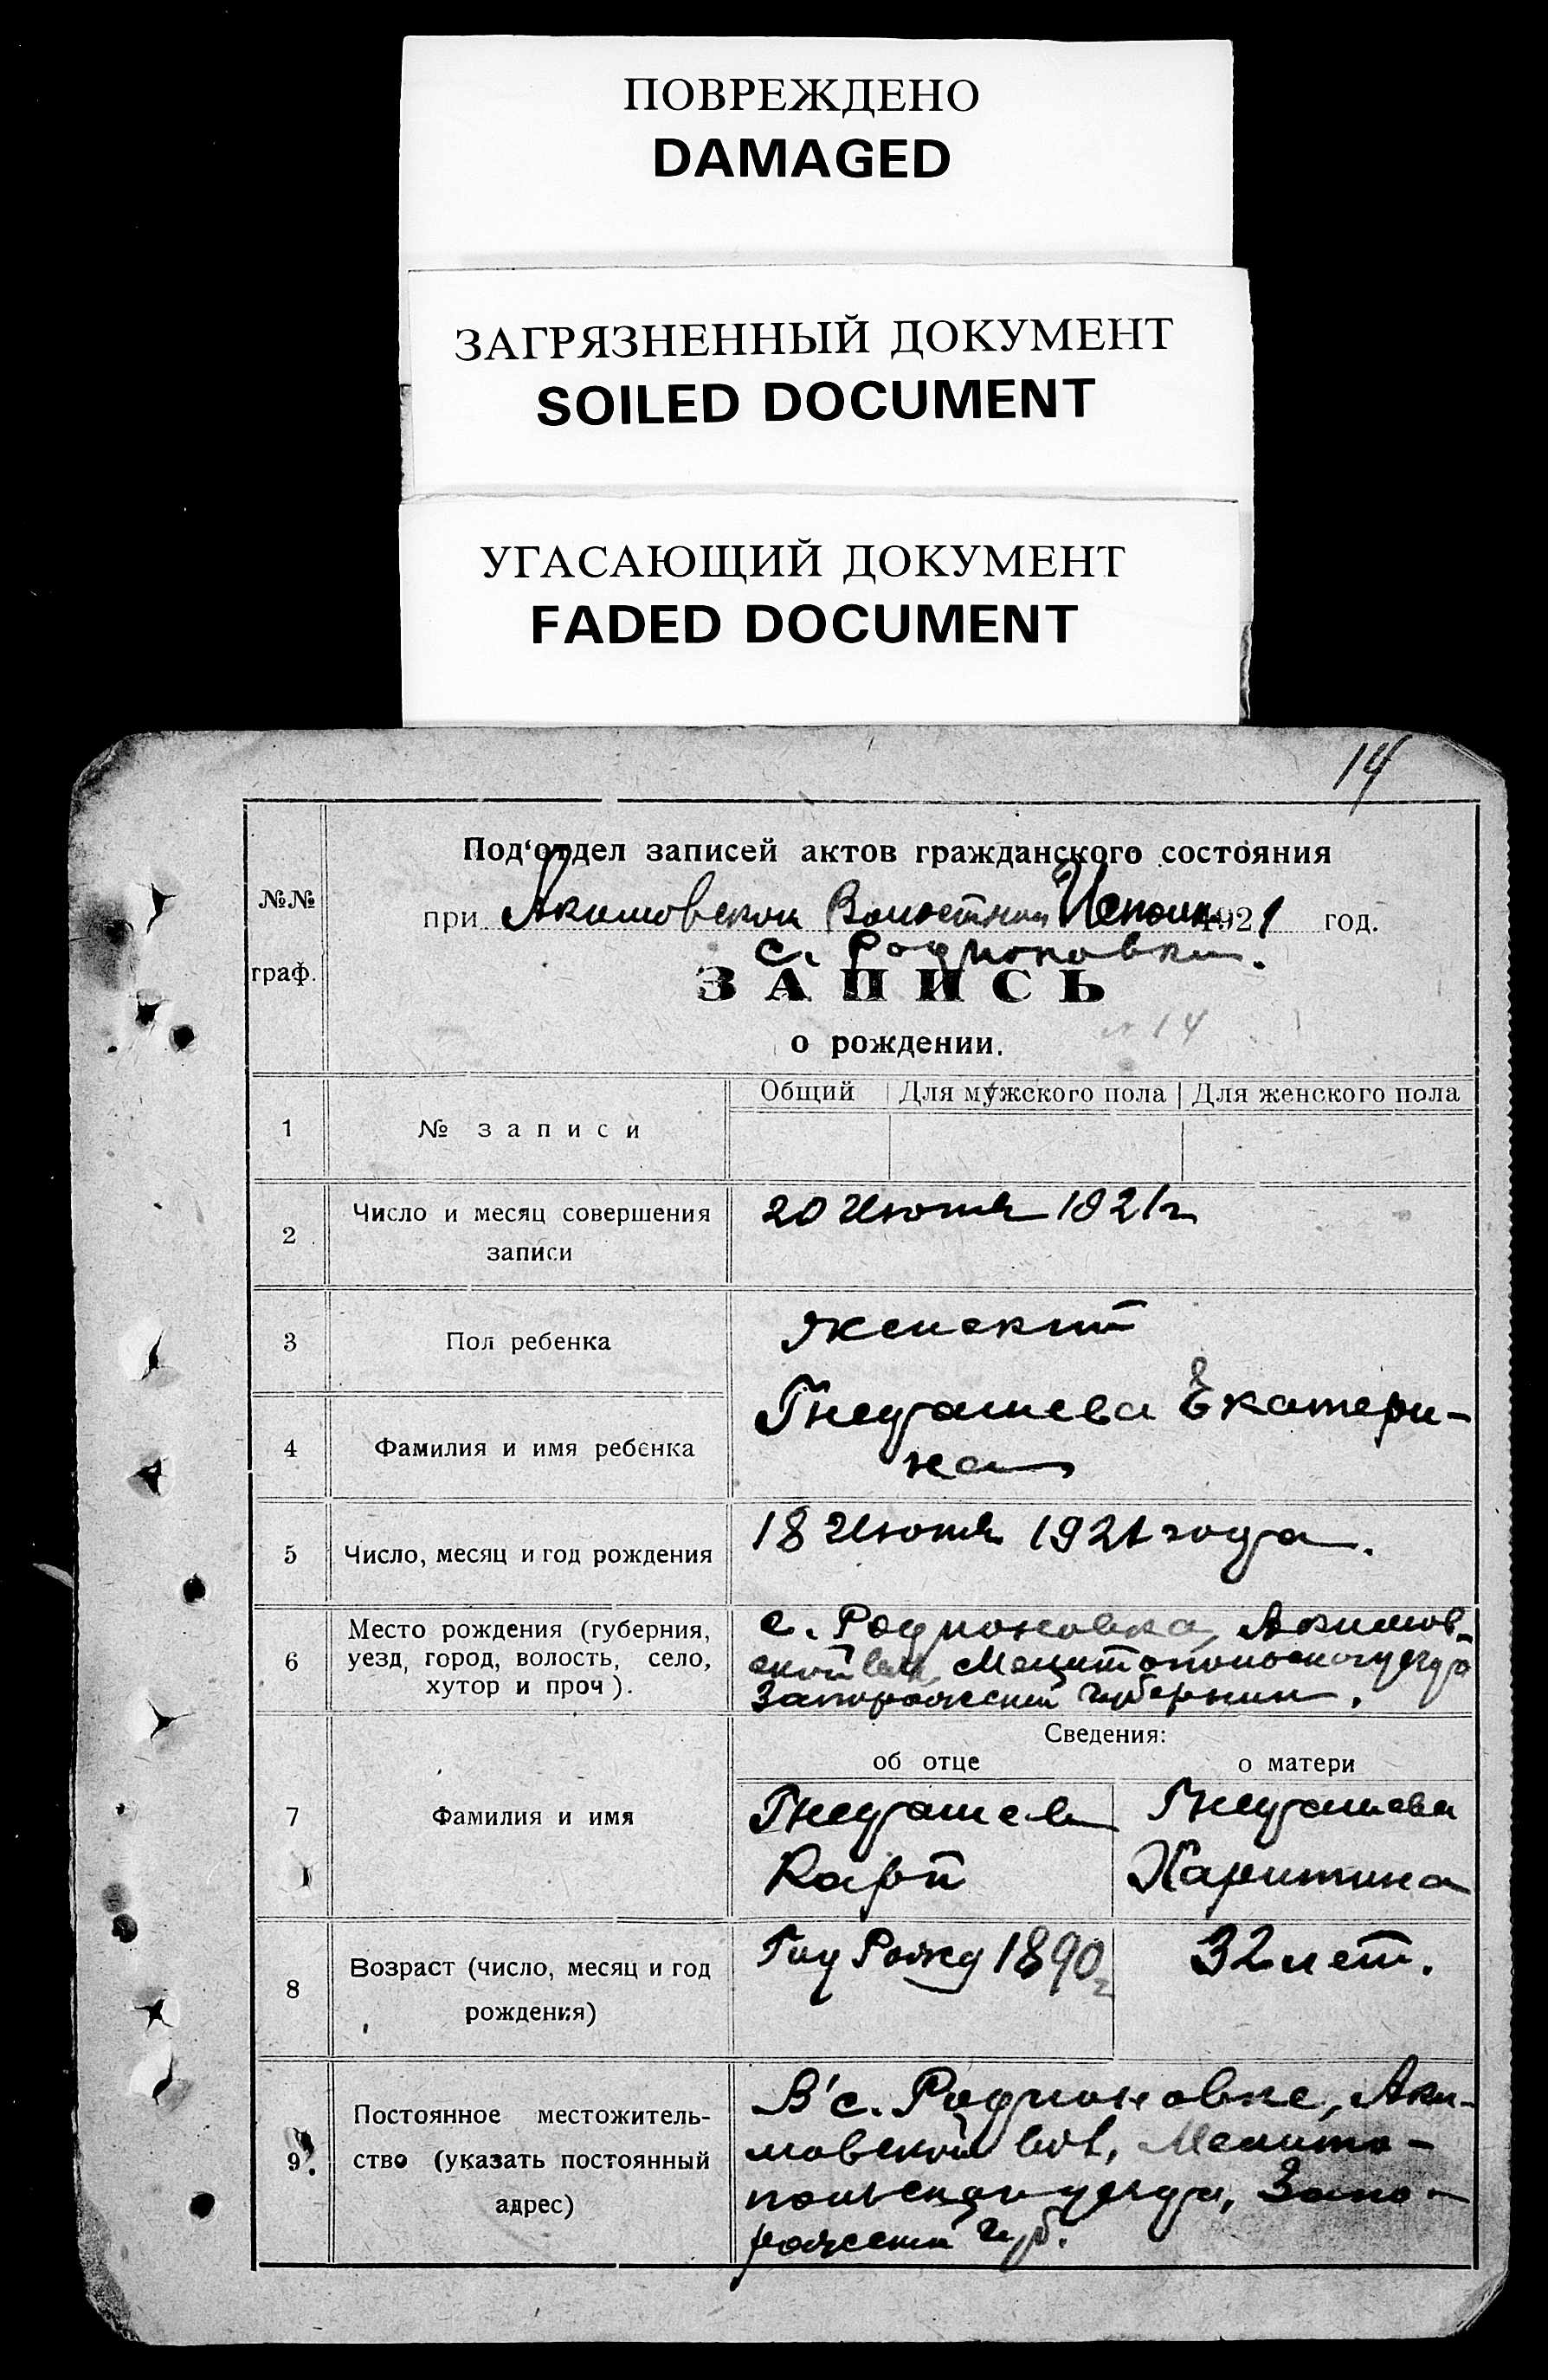 ПОВРЕЖДЕНО
DAMAGED
ЗАГРЯЗНЕННЫЙ ДОКУМЕНТ
SOILED DOCUMENT
УГАСАЮЩИЙ ДОКУМЕНТ
FADED DOCUMENT
14
Под‘отдел записей актов гражданского состояния
№№
граф.
при Акимовском Волостном Исполк. 1921 год.
с. Родионовки.
ЗАПИСЬ
№ 14
о рождении.
Общий Для мужского пола Для женского пола
1 № записи
2 Число и месяц совершения записи
20 Июля 1921 г
3 Пол ребенка
Женский
4 Фамилия и имя ребенка
Гнедашева Екатери-
на
5 Число, месяц и год рождения
18 Июля 1921 года.
6 Место рождения (губерния,
уезд, город, волость, село,
хутор и проч).
с. Родионовка, Акимов-
ской вол, Мелитопольского уезда
Запорожской губернии.
Сведения:
об отце о матери
7 Фамилия и имя
Гнедашев Гнедашева
Карп Харитина
8 Возраст (число, месяц и год
рождения)
Год Рожд 1890 г 32 лет.
9. Постоянное местожитель-
ство (указать постоянный
адрес)
В с. Родионовке, Аки-
мовской вол, Мелито-
польского уезда, Запо-
рожской губ.